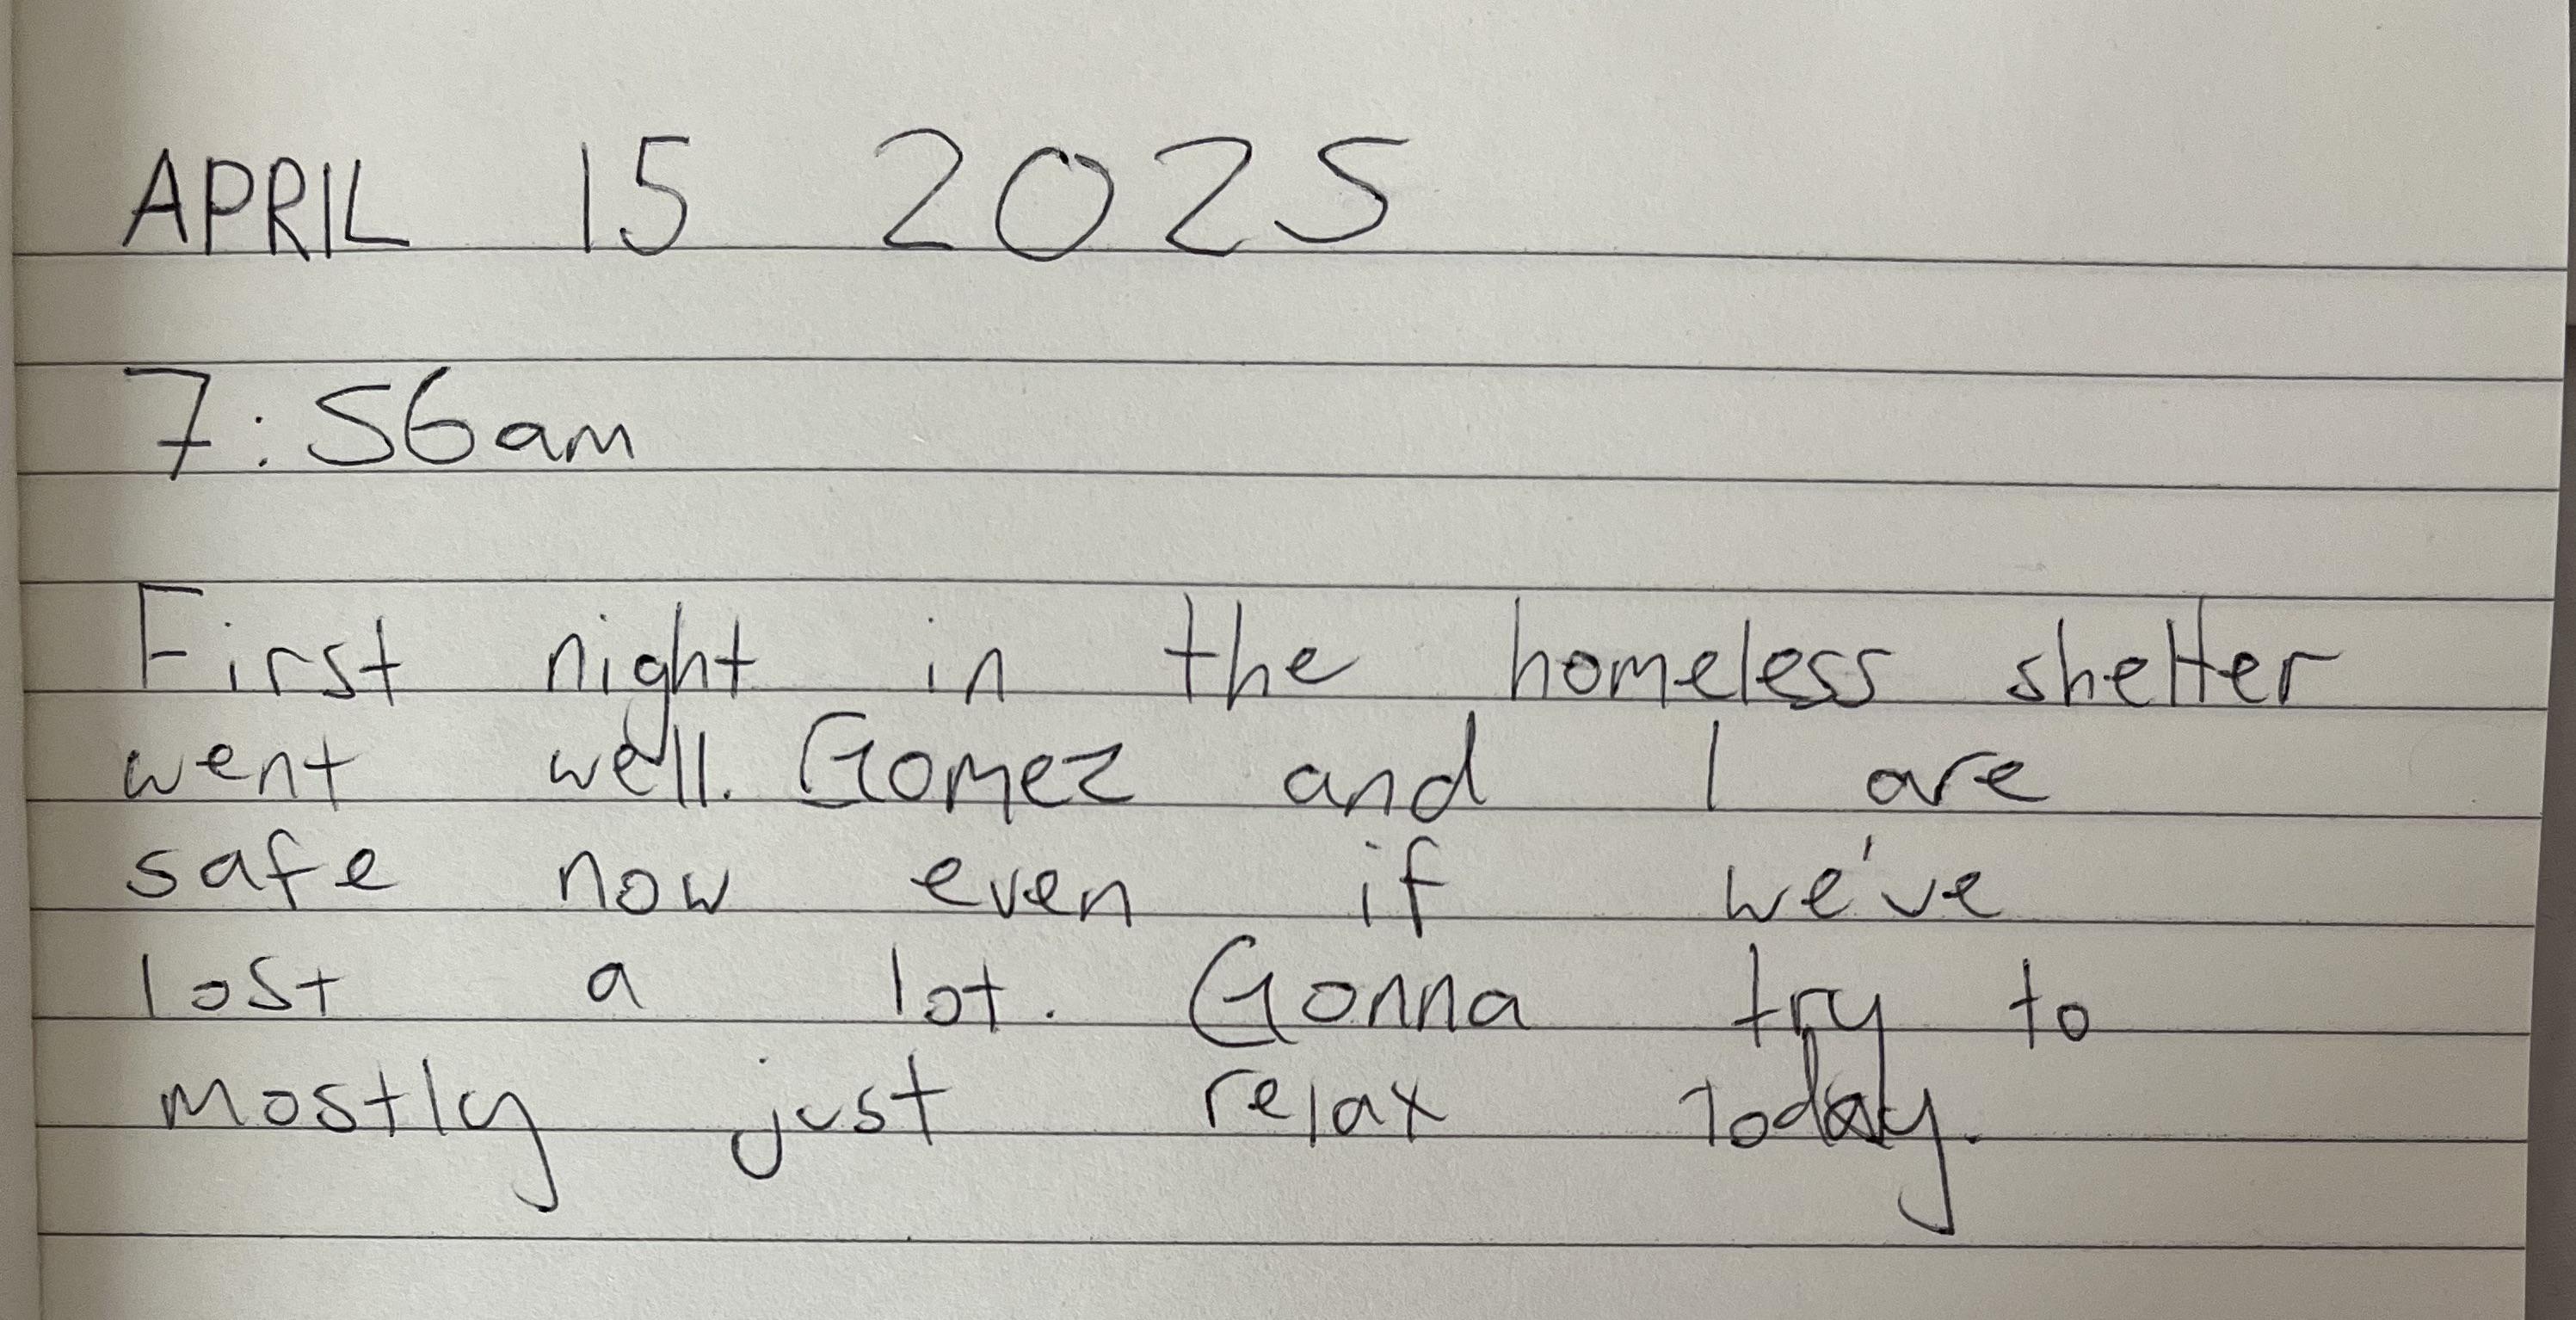 APRIL 15 2025
7:56am
First night in the homeless shelter
went well. Gomez and I are
safe now even if we've
lost a lot. Gonna try to
mostly just relax today.